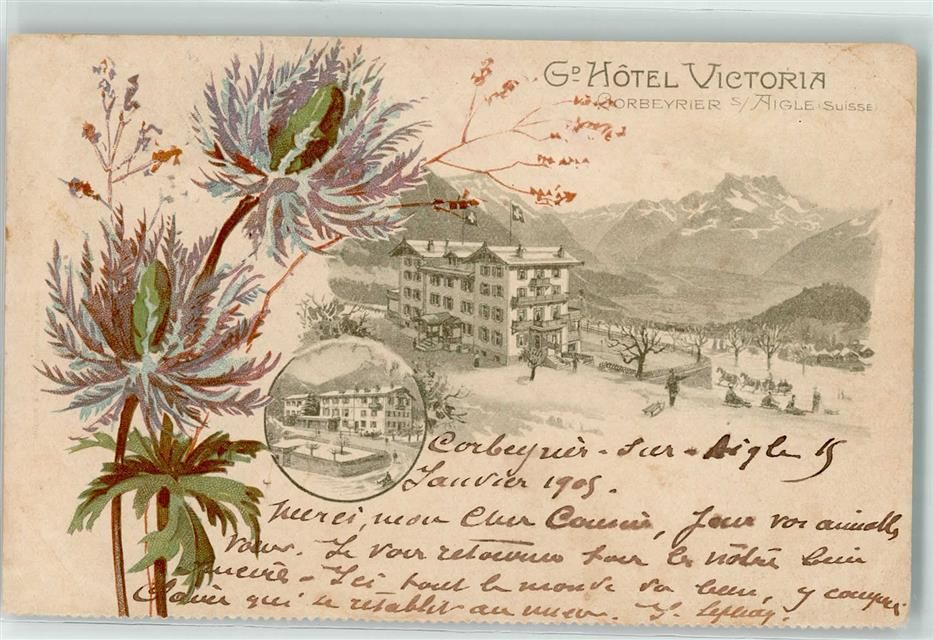 GD HÔTEL VICTORIA
CORBEYRIER S/ AIGLE (SUISSE)
Corbeyrier - sur - Aigle 15
Janvier 1905.
Merci, mon Cher Cousin, pour vos aimables
vœux. Je vous retourne les nôtres bien
sincère - Ici tout le monde va bien, y compris
Clavier qui se rétablit au mieux.